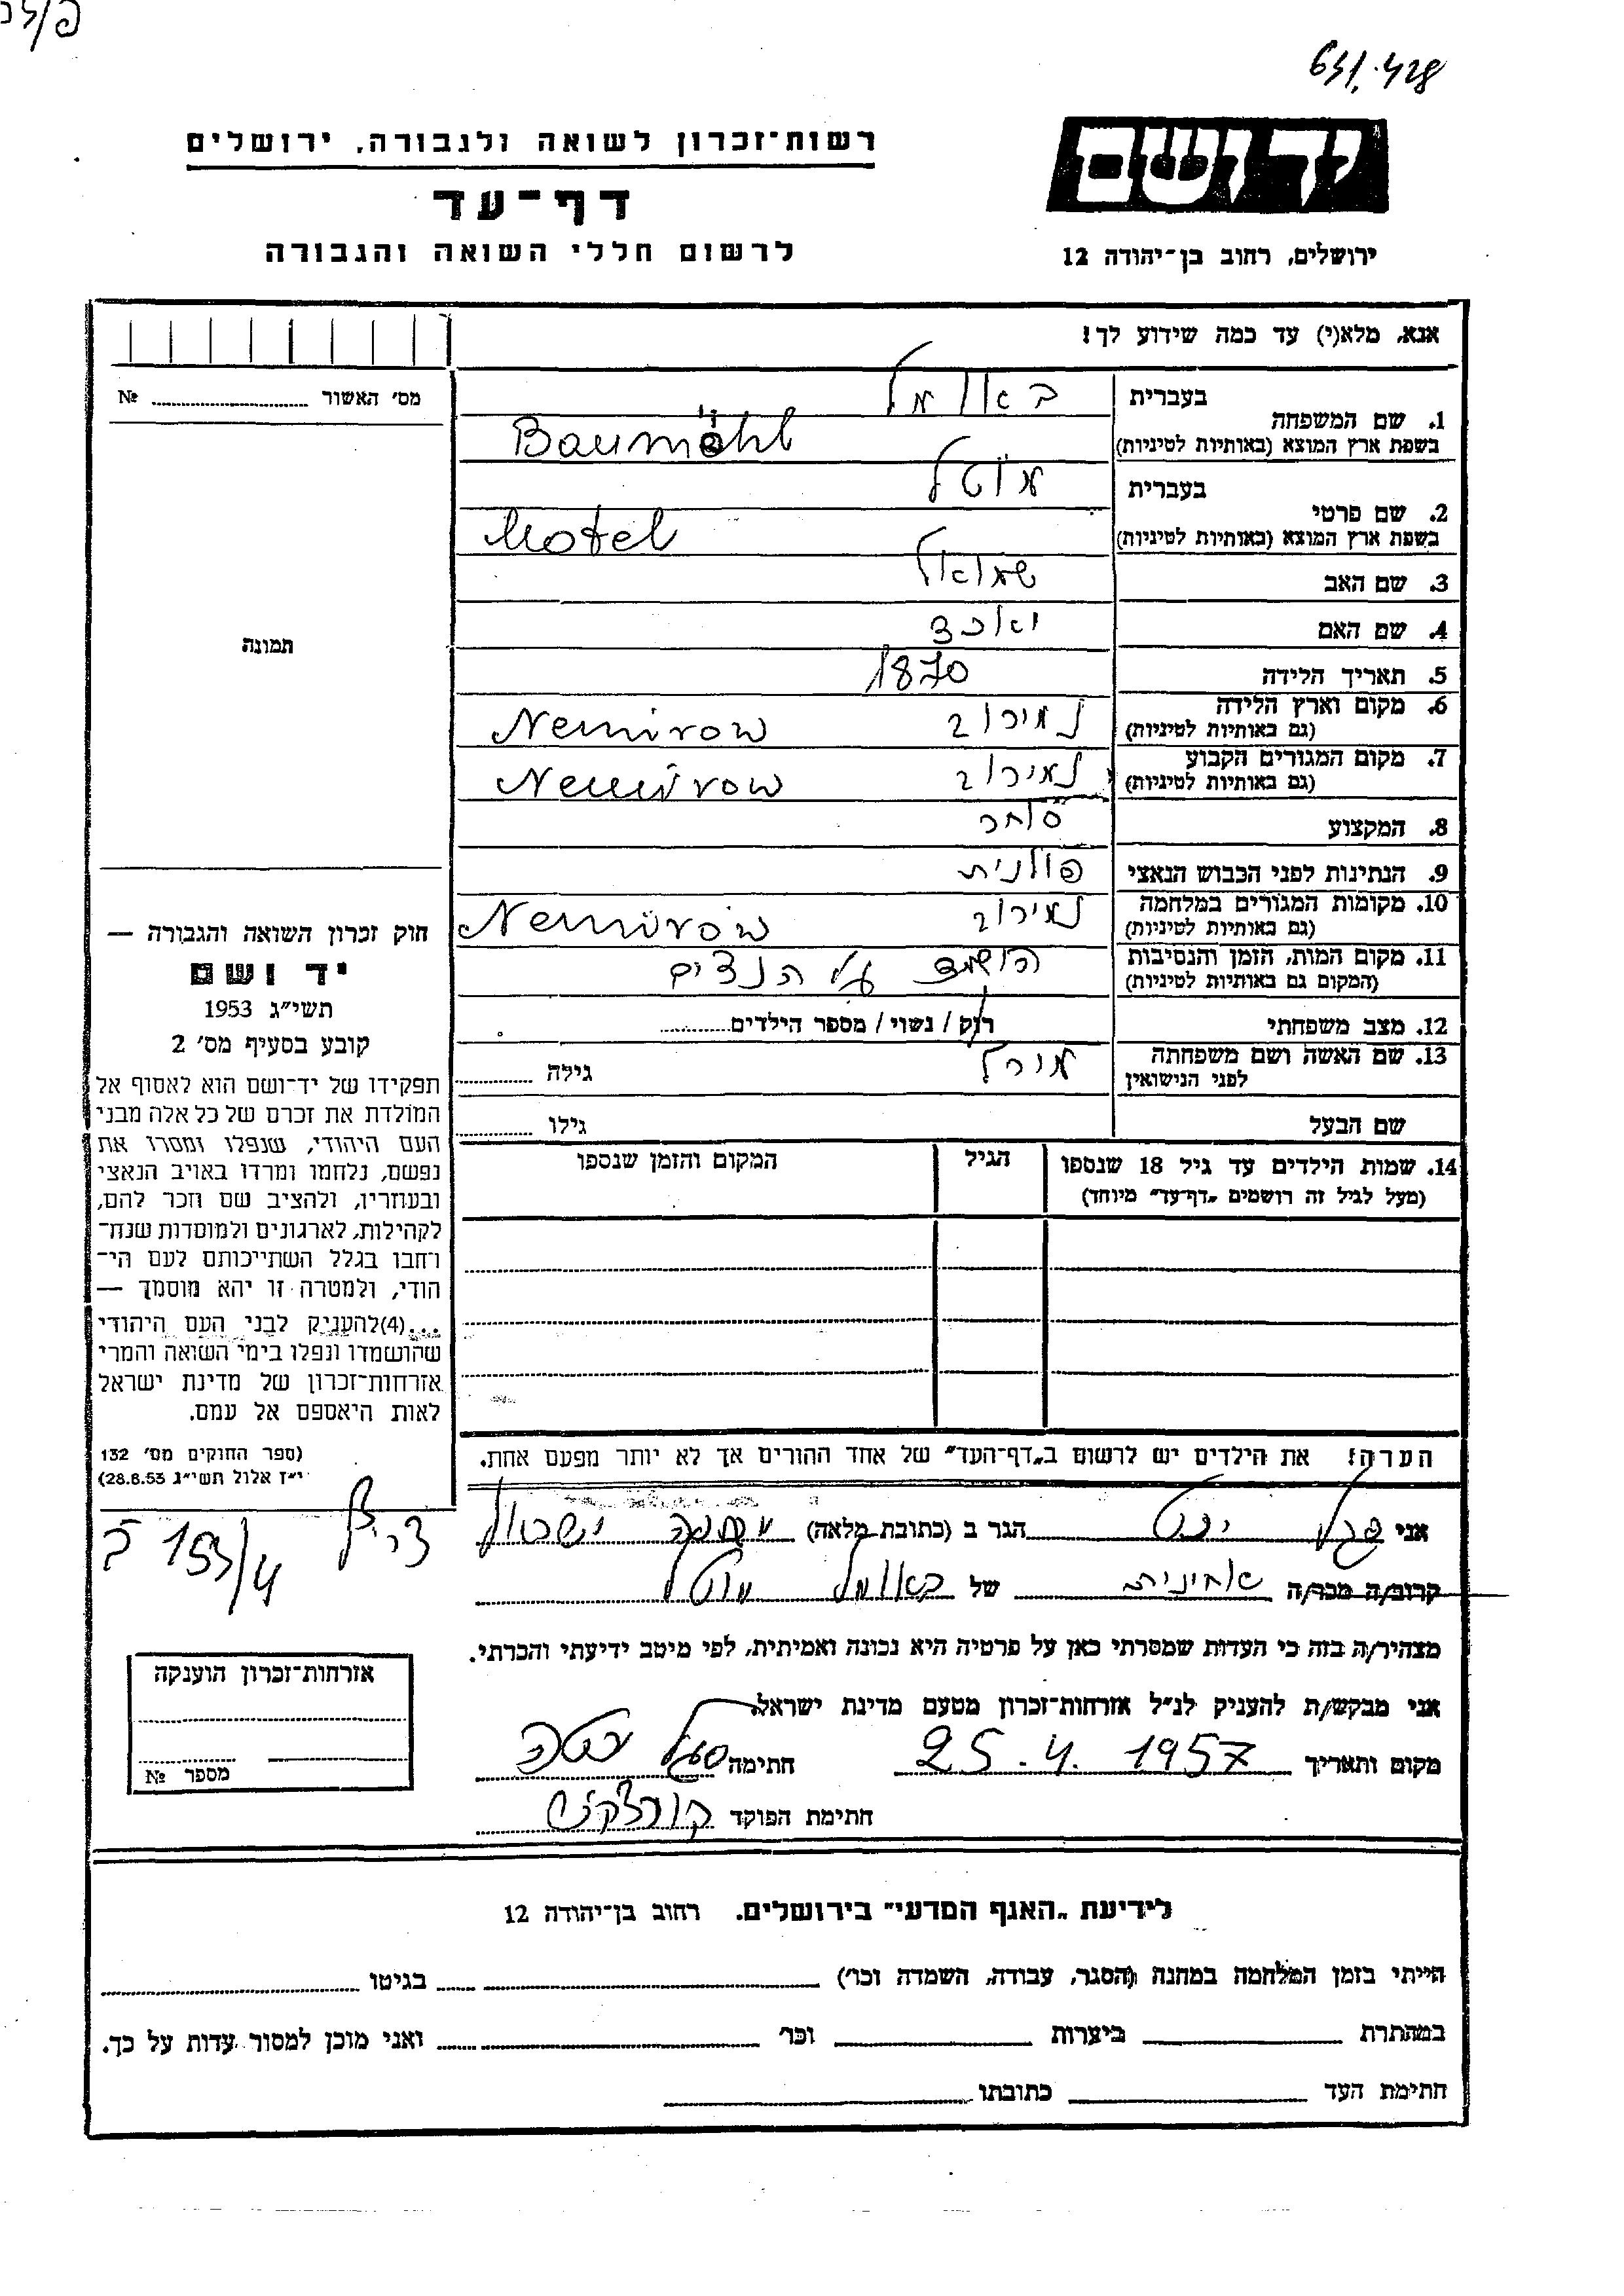 631/428
יד ושם
ירושלים, רחוב בן־יהודה 12
רשות־זכרון לשואה ולגבורה, ירושלים
דף־עד
לרשום חללי השואה והגבורה
אנא, מלא(י) עד כמה שידוע לך!
מס׳ האשור № 
1. שם המשפחה
בעברית באומל
בשפת ארץ המוצא (באותיות לטיניות) Baumöhl
2. שם פרטי
בעברית מוטל
בשפת ארץ המוצא (באותיות לטיניות) Motel
3. שם האב שמואל
4. שם האם יוכבד
5. תאריך הלידה 1870
6. מקום וארץ הלידה נמירוב Nemirow
(גם באותיות לטיניות)
7. מקום המגורים הקבוע נמירוב Nemirow
(גם באותיות לטיניות)
8. המקצוע סוחר
9. הנתינות לפני הכבוש הנאצי פולנית
10. מקומות המגורים במלחמה נמירוב Nemirow
(גם באותיות לטיניות)
11. מקום המות, הזמן והנסיבות
(המקום גם באותיות לטיניות)
12. מצב משפחתי רוק / נשוי / מספר הילדים
13. שם האשה ושם משפחתה גילה
לפני הנישואין
שם הבעל גילו
14. שמות הילדים עד גיל 18 שנספו הגיל המקום והזמן שנספו
(מעל לגיל זה רושמים „דף־עד״ מיוחד)
הערה! את הילדים יש לרשום ב„דף־העד״ של אחד ההורים אך לא יותר מפעם אחת.
תמונה
חוק זכרון השואה והגבורה —
יד ושם
תשי״ג 1953
קובע בסעיף מס׳ 2
תפקידו של יד־ושם הוא לאסוף אל
המולדת את זכרם של כל אלה מבני
העם היהודי, שנפלו ומסרו את
נפשם, נלחמו ומרדו באויב הנאצי
ובעוזריו, ולהציב שם וזכר להם,
לקהילות, לארגונים ולמוסדות שנח־
רחבו בגלל השתייכותם לעם הי־
הודי, ולמטרה זו יהא מוסמך —
...(4)להעניק לבני העם היהודי
שהושמדו ונפלו בימי השואה והמרי
אזרחות־זכרון של מדינת ישראל
לאות היאספם אל עמם.
(ספר החוקים מס׳ 132
י״ז אלול תשי״ג 28.8.53)
153/4
אני הגר ב (כתובת מלאה)
קרוב/ה מכר/ה אחינית של באומל מוטל
מצהיר/ה בזה כי העדות שמסרתי כאן על פרטיה היא נכונה ואמיתית, לפי מיטב ידיעתי והכרתי.
אני מבקש/ת להעניק לנ״ל אזרחות־זכרון מטעם מדינת ישראל.
מקום ותאריך 25.4.1957 חתימה
חתימת הפוקד
אזרחות־זכרון הוענקה
מספר №
לידיעת „האגף המדעי״ בירושלים. רחוב בן־יהודה 12
הייתי בזמן המלחמה במחנה (הסגר, עבודה, השמדה וכו׳) בגיטו
במחתרת ביערות וכו׳ ואני מוכן למסור עדות על כך.
חתימת העד כתובתו